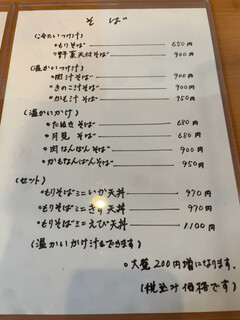 そば
(冷たいつけ汁)
もりそば 650円
野菜天付そば 900円
(温かいつけ汁)
肉汁そば 900円
きのこ汁そば 900円
かも汁そば 950円
(温かいかけ)
たぬきそば 680円
月見そば 680円
肉なんばんそば 900円
かもなんばんそば 950円
(セット)
もりそばミニいか天丼 970円
もりそばミニきり天丼 970円
もりそばミニえび天丼 1100円
(温かいかけ汁もできます)
大盛200円増になります。
(税込み価格です)